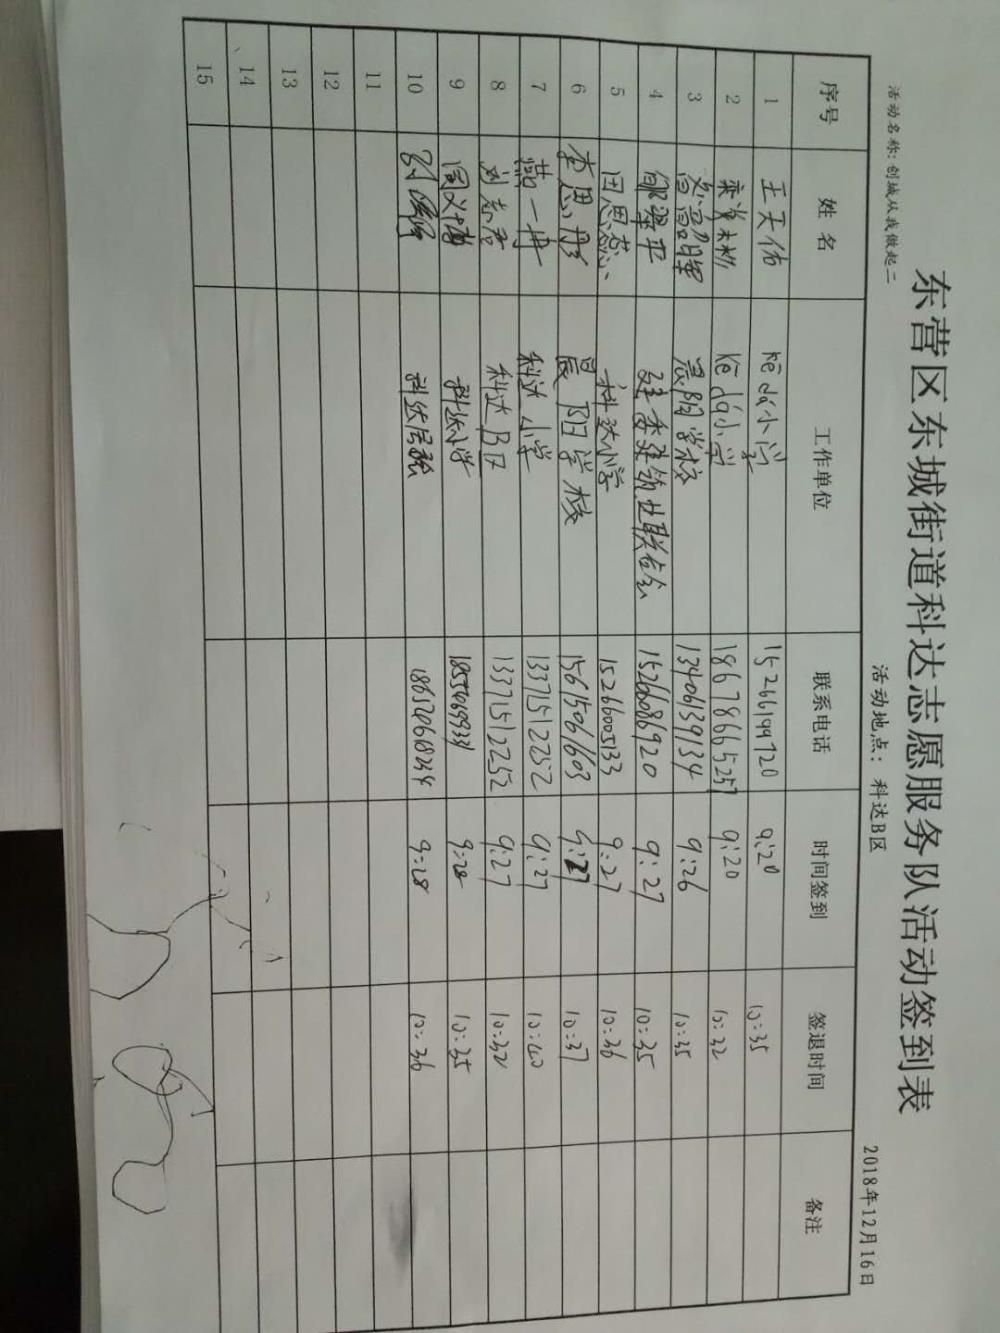 东营区东城街道科达志愿服务队活动签到表
活动名称:创城从我做起二 活动地点：科达B区 2018年12月16日
序号 姓名 工作单位 联系电话 时间签到 签退时间 备注
1 王天佑 kē dá小学 15266199720 9:20 10:35
2 kē dá小学 18678665257 9:20 10:32
3 晨阳学校 13406139134 9:26 10:35
4 邹翠平 15266086920 9:27 10:35
5 田思蕊 科达小学 15266005133 9:27 10:36
6 李思彤 晨阳学校 15615061603 9:27 10:37
7 燕一冉 科达小学 13371512252 9:27 10:40
8 刘志君 科达B区 13371512252 9:27 10:32
9 科达小学 18554699331 9:28 10:35
10 9:28 10:36
11
12
13
14
15